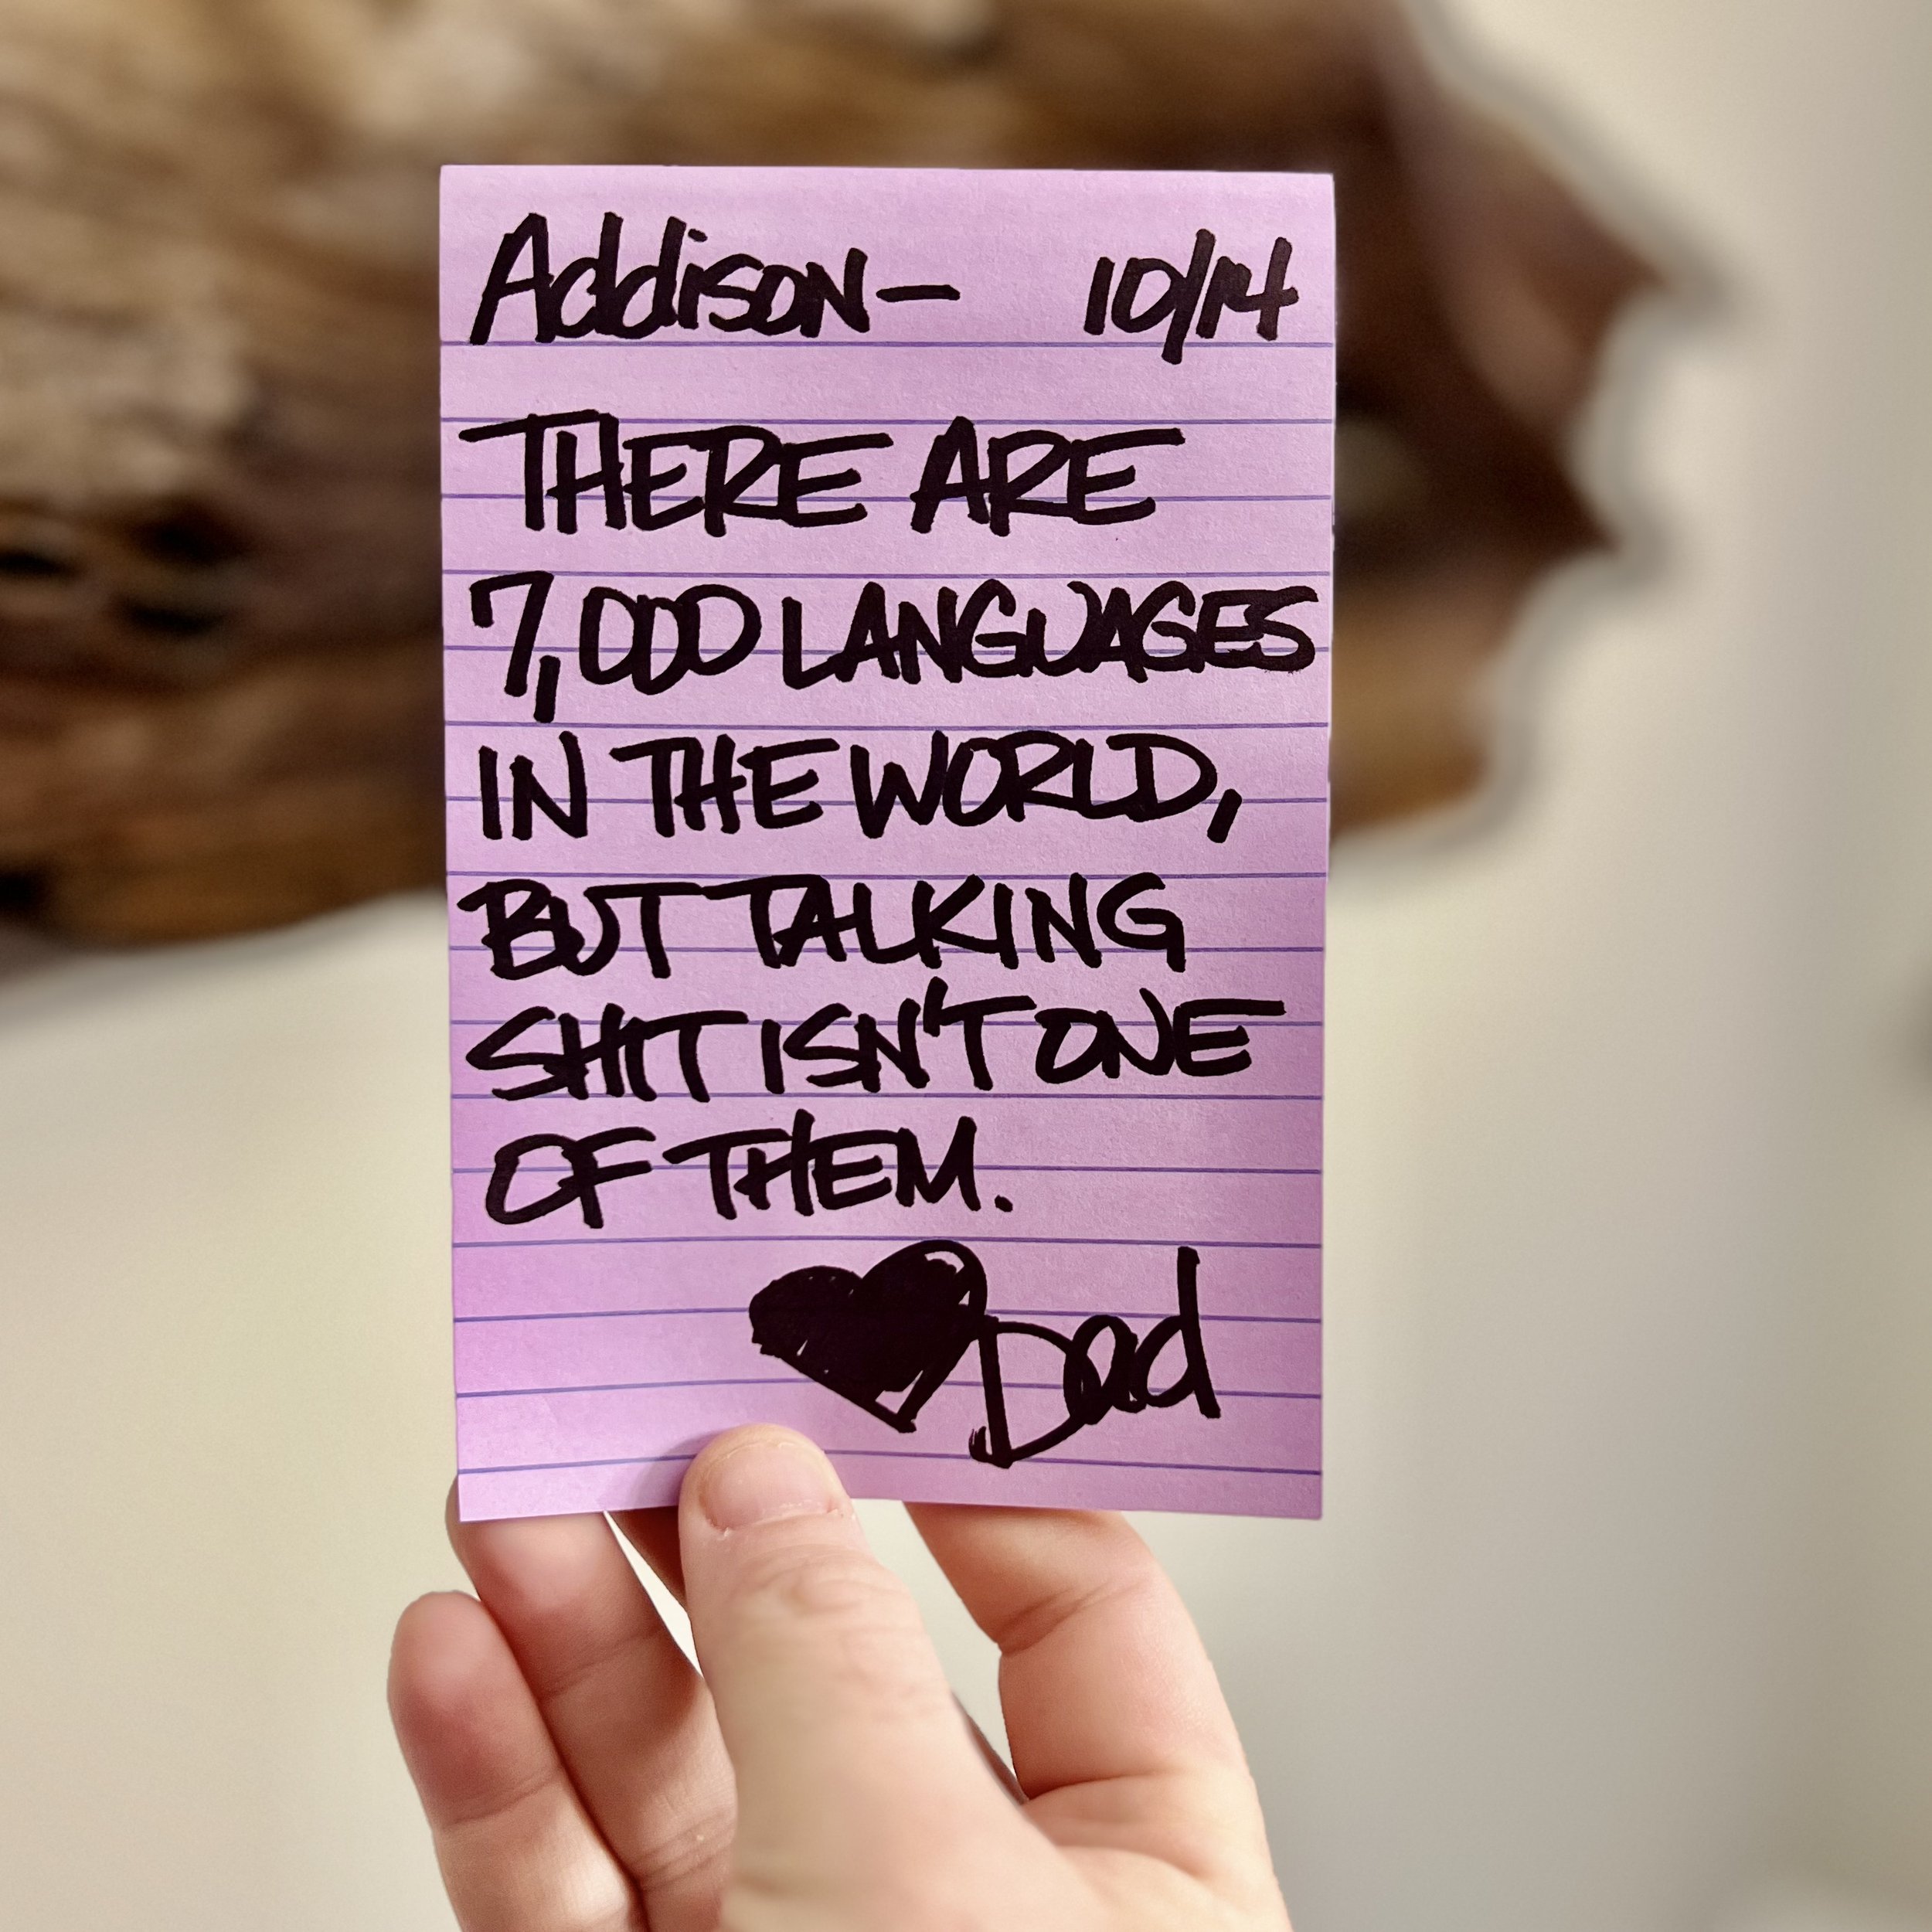 Addison— 10/14
THERE ARE
7,000 LANGUAGES
IN THE WORLD,
BUT TALKING
SHIT ISN'T ONE
OF THEM.
♥Dad